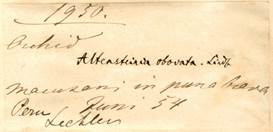 1950.
Orchid
Altensteinia obovata. Lindl.
macusani in puna brava
Peru Juni 54
Lechler